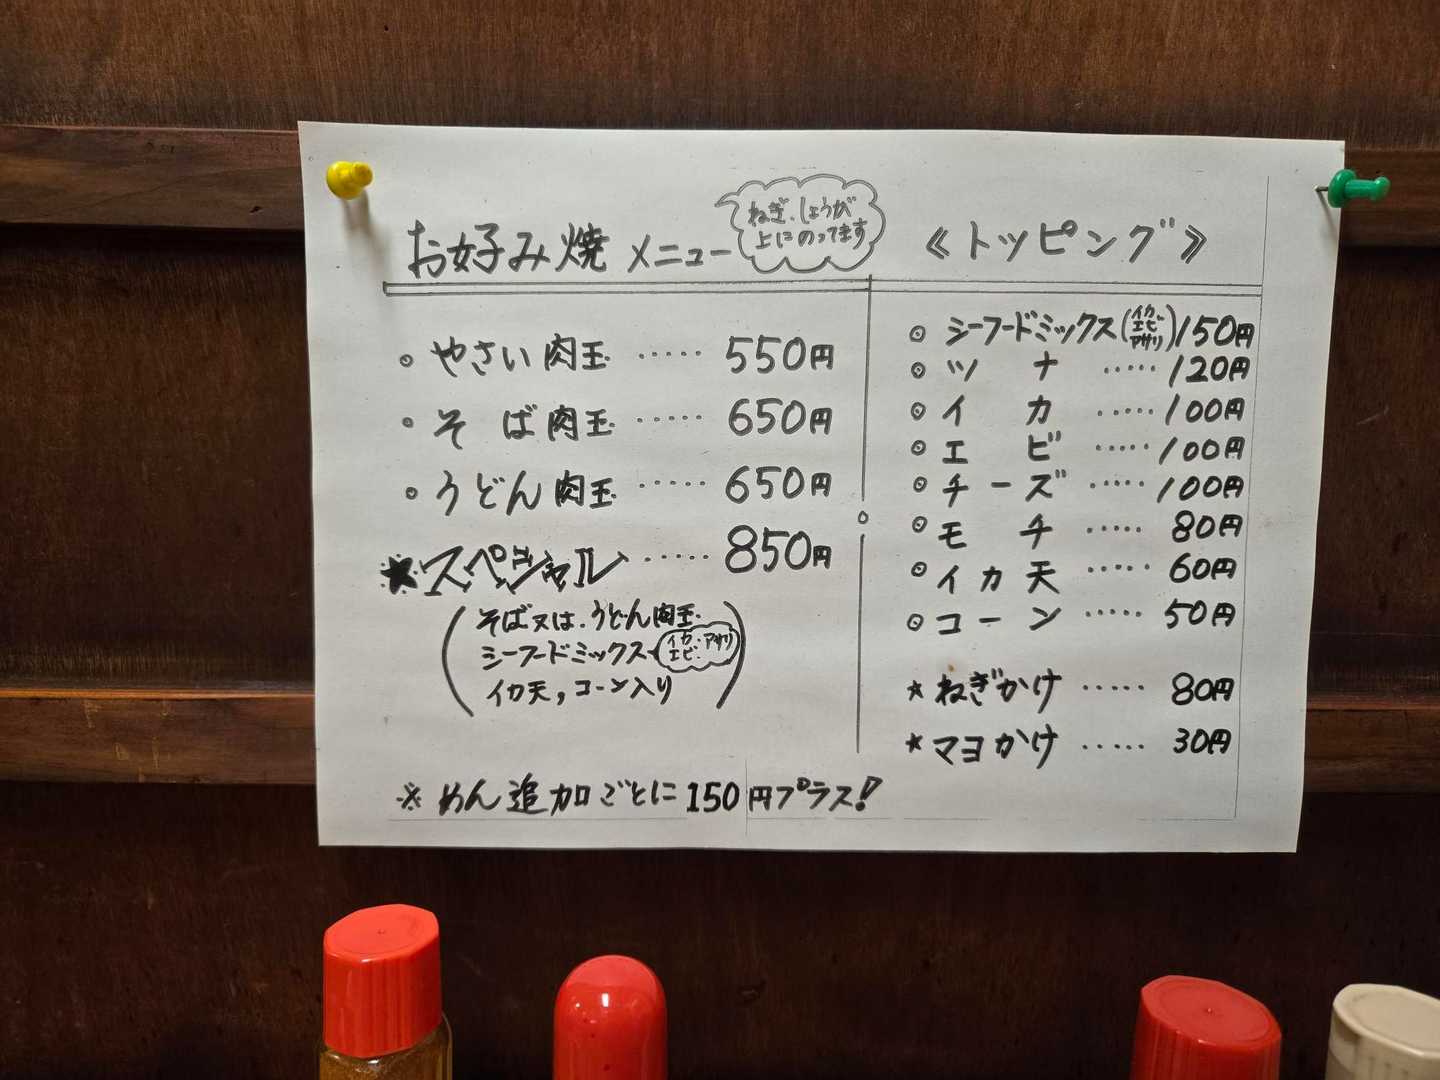 お好み焼 メニュー
ねぎ、しょうが
上にのってます
○ やさい肉玉 ····· 550円
○ そば肉玉 ····· 650円
○ うどん肉玉 ····· 650円
★ スペシャル ····· 850円
(そば又は、うどん肉玉
シーフードミックス イカ・アサリ エビ・
イカ天,コーン入り)
※ めん追加ごとに150円プラス!
《トッピング》
◎ シーフードミックス(イカ エビ アサリ)150円
◎ ツナ ····· 120円
◎ イカ ····· 100円
◎ エビ ····· 100円
◎ チーズ ····· 100円
◎ モチ ····· 80円
◎ イカ天 ····· 60円
◎ コーン ····· 50円
★ ねぎかけ ····· 80円
★ マヨかけ ····· 30円